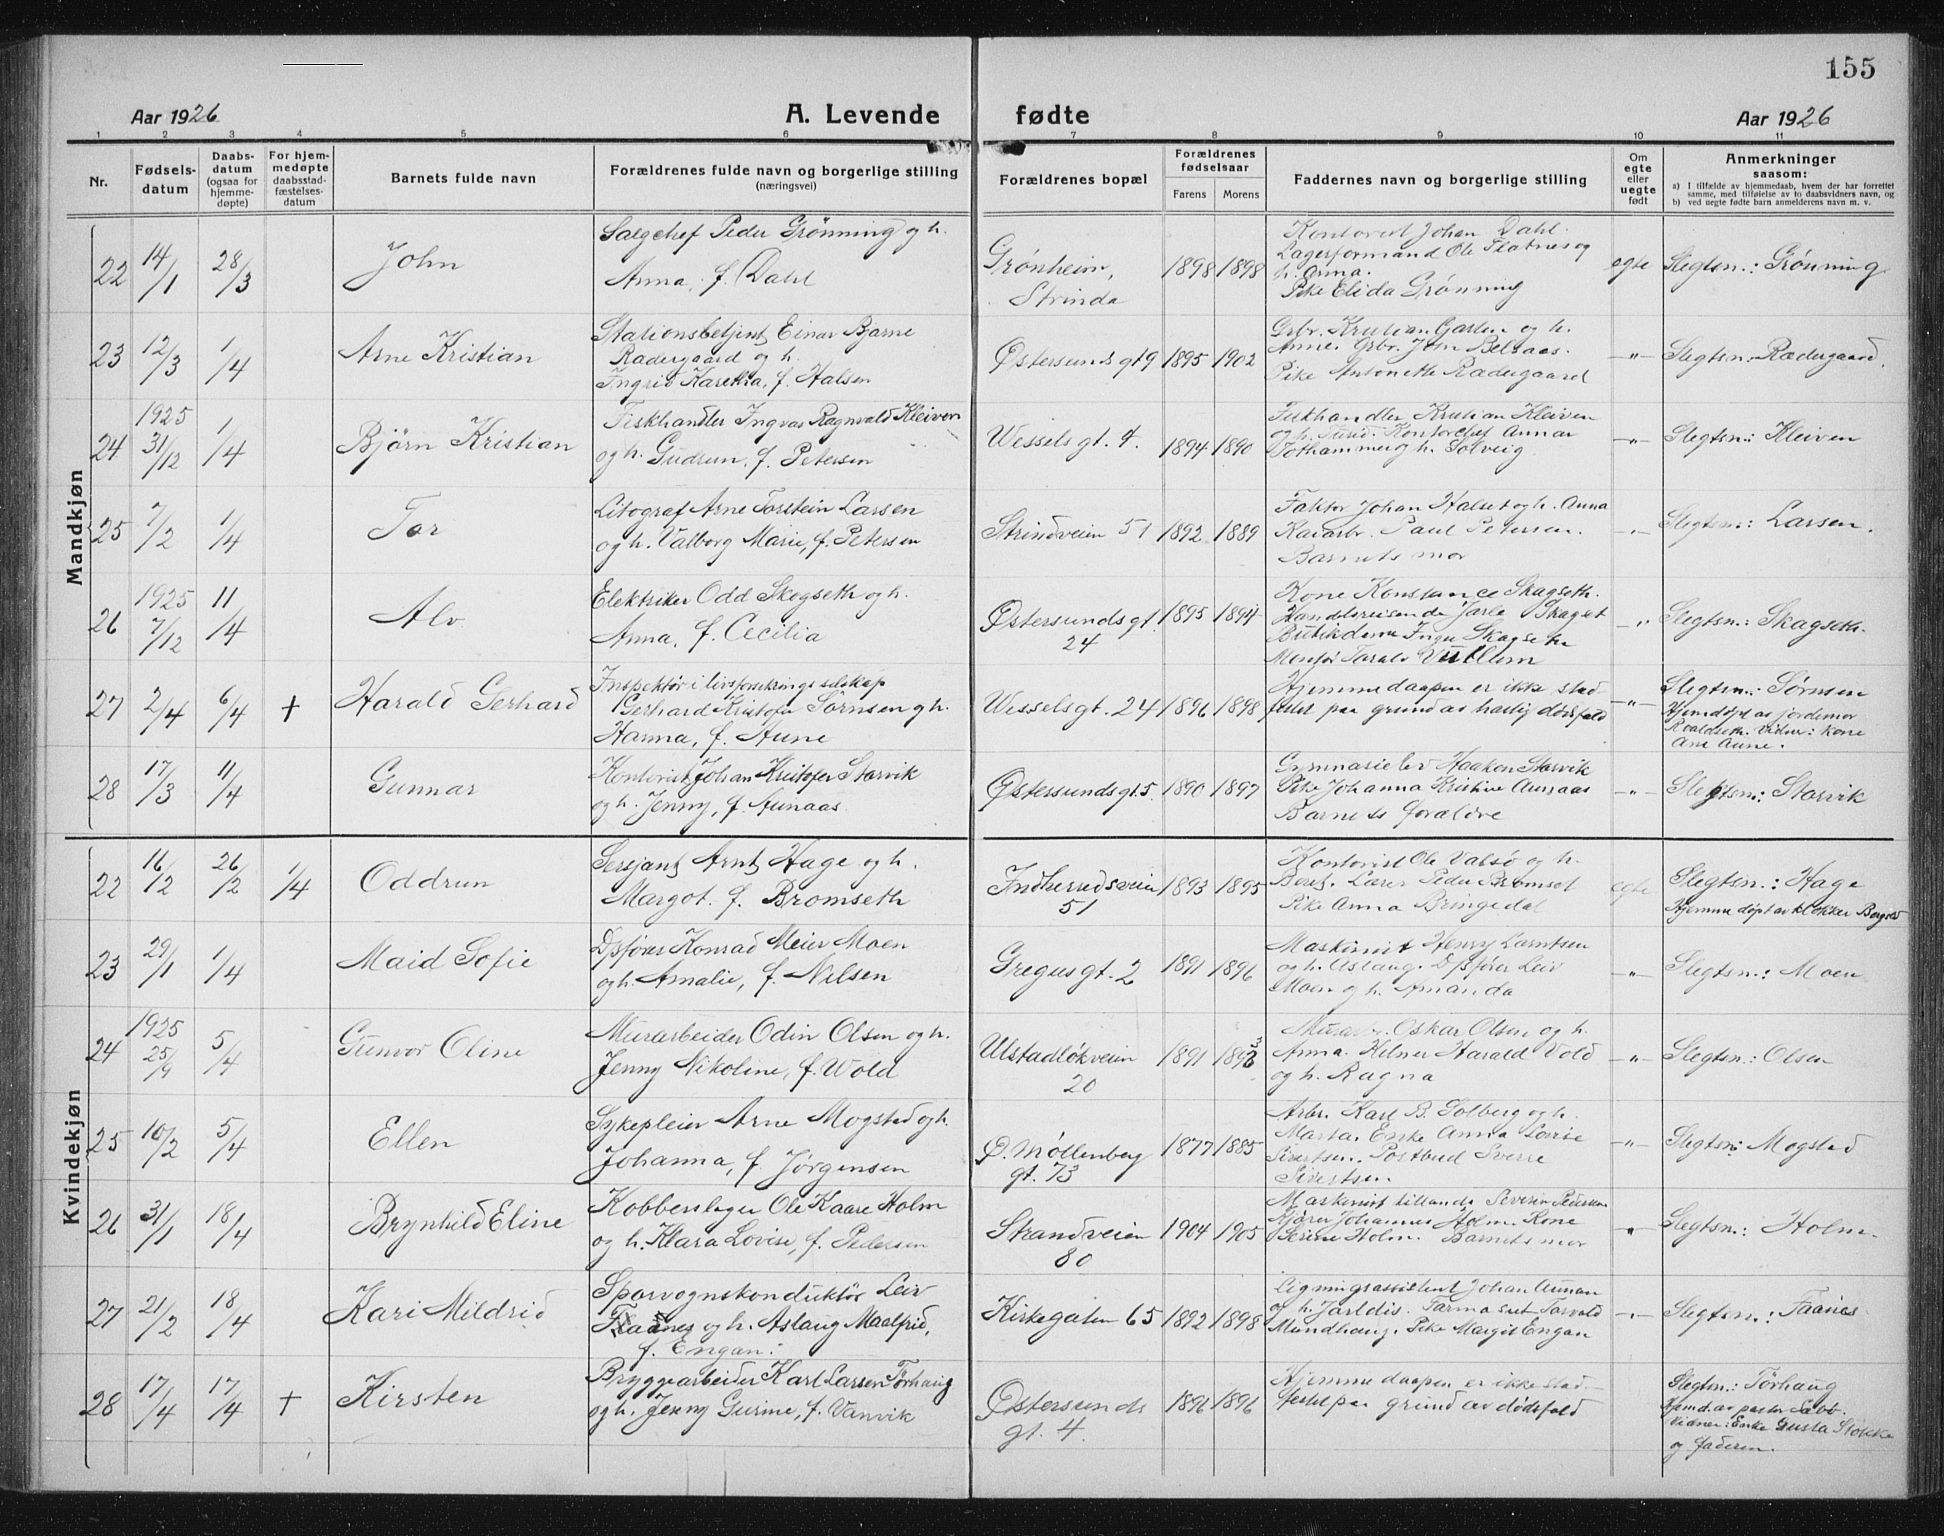 155
Aar 1926 A. Levende fødte Aar 1926
1 2 3 4 5 6 7 8 9 10 11
Nr. Fødsels-datum Daabs-datum (ogsaa for hjemme-døpte) For hjem-medøpte daabsstad-fæstelses-datum Barnets fulde navn Forældrenes fulde navn og borgerlige stilling (næringsvei) Forældrenes bopæl Forældrenes fødselsaar Farens Morens Faddernes navn og borgerlige stilling Om egte eller uegte født Anmerkninger saasom:
a) I tilfælde av hjemmedaab, hvem der har forrettet samme, med tilføielse av to daabsvidners navn, og
b) ved uegte fødte barn anmelderens navn m. v.
Mandkjøn
22 14/1 28/3 John
Salgchef Peder Grønning og h.
Anna, f. Dahl
Grønheim,
Strinda
1898 1898
Kontorist Johan Dahl.
Lagerformand Ole Flatnes og
h. Anna.
Pike Elida Grønning
egte Slegtsn.: Grønning
23 12/3 1/4 Arne Kristian
Stationsbetjent Einar Bjarne
Radergaard og h.
Ingrid Karetha, f. Halsen
Østersundsgt 9 1895 1902
Grbr. Kristian Garten og h.
Anne. Grbr. John Belsaas.
Pike Antonette Radergaard
-"- Slegtsn.: Radergaard
24 1925 31/12 1/4 Bjørn Kristian
Fiskhandler Ingvar Ragnvald Kleiven
og h. Gudrun, f. Petersen
Wesselsgt. 4. 1894 1890
Fiskhandler Kristian Kleiven
og h. Kontorchef Annar
Vothammer og h. Solveig
-"- Slegtsn.: Kleiven
25 7/2 1/4 Tor
Litograf Arne Torstein Larsen
og h. Valborg Marie, f. Petersen
Strindveien 51 1892 1889
Faktor Johan Halset og h. Anna
Kaiarbr. Paul Petersen.
Barnets mor
-"- Slegtsn.: Larsen.
26 1925 7/12 11/4 Alv
Elektriker Odd Skagseth og h.
Anna, f. Cecilia
Østersundsgt.
24
1895 1894
Kone Konstance Skagseth.
Handelsreisende Jarle Skagset
Butikdame Inga Skagseth
Montør Torals Vullum
-"- Slegtsn.: Skagseth.
27 2/4 6/4 + Harald Gerhard
Inspektør i livsforsikringsselskap
Gerhard Kristofer Sørnsen og h.
Hanna, f. Aune
Wesselsgt. 24 1896 1898
Hjemmedaapen er ikke stad-
festet paa grund av hastig dødsfald
-"- Slegtsn.: Sørnsen
Hjemdøpt av jordemor
Roaldseth. Vidner: Kone
Ane Aune.
28 17/3 11/4 Gunnar
Kontorist Johan Kristofer Storvik
og h. Jenny, f. Aunaas.
Østersundsgt. 5. 1890 1897
Gymnasielev Haaken Storvik
Pike Johanna Kristine Aunaas
Barnets forældre
-"- Slegtsn.: Storvik
Kvindekjøn
22 16/2 26/2 1/4 Oddrun
Sersjant Arnt Hage og h.
Margot. f. Bromseth
Indherredsveien
51
1893 1895
Kontorist Ole Valsø og h.
Beret. Lærer Peder Bromset
Pike Anna Bringedal
egte Slegtsn.: Hage
Hjemmedøpt av klokker
23 29/1 1/4 Maid Sofie
Dpfører Konrad Meier Moen
og h. Amalie, f. Nilsen
Gregusgt. 2 1891 1896
Maskinist Henry Larntsen
og h. Aslaug. Dpfører Leiv
Moen og h. Amanda
-"- Slegtsn.: Moen
24 1925 25/9 5/4 Gunvor Oline
Murarbeider Odin Olsen og h.
Jenny Nikoline, f. Wold
Ulstadløkveien
20
1891 1893
Oskar Olsen og h.
Anna. Kelner Harald Vold
og h. Ragna
-"- Slegtsn.: Olsen
25 10/2 5/4 Ellen
Sykepleier Arne Mogstad og h.
Johanna, f. Jørgensen
Ø. Møllenberg
gt. 73
1877 1885
Arbr. Karl B. Solberg og h.
Marta. Enke Anna Lovise
Sivertsen. Postbud Sverre
Sivertsen
-"- Slegtsn: Mogstad
26 31/1 18/4 Brynhild Eline
Kobberslager Ole Kaare Holm
og h. Klara Lovise, f. Pedersen
Strandveien
80
1904 1905
Maskinist tillands Severin Pedersen
Fjører Johannes Holm. Kone
Serine Holm. Barnets mor
" Slegtsn.: Holm.
27 21/2 18/4 Kari Mildrid
Sporvognskonduktør Leiv
Faanes og h. Aslaug Maalfrid,
f. Engan.
Kirkegaten 65 1892 1898
Ligningsassistent Johan Aunan
og h. Jarldis. Farmaseut Torvald
Mundhaug. Pike Margit Engan
-"- Slegtsn.: Faanes
28 17/4 17/4 + Kirsten
Bryggearbeider Karl Larsen Tørhaug
og h. Jenny Gurine, f. Vanvik
Østersunds
gt. 4.
1896 1896
Hjemmedaapen er ikke stad-
festet paa grund av dødsfald
Slegtsn.: Tørhaug
Hjemd. av pastor Sæbb.
Vidner: Enke Gusta Stokke
og faderen.